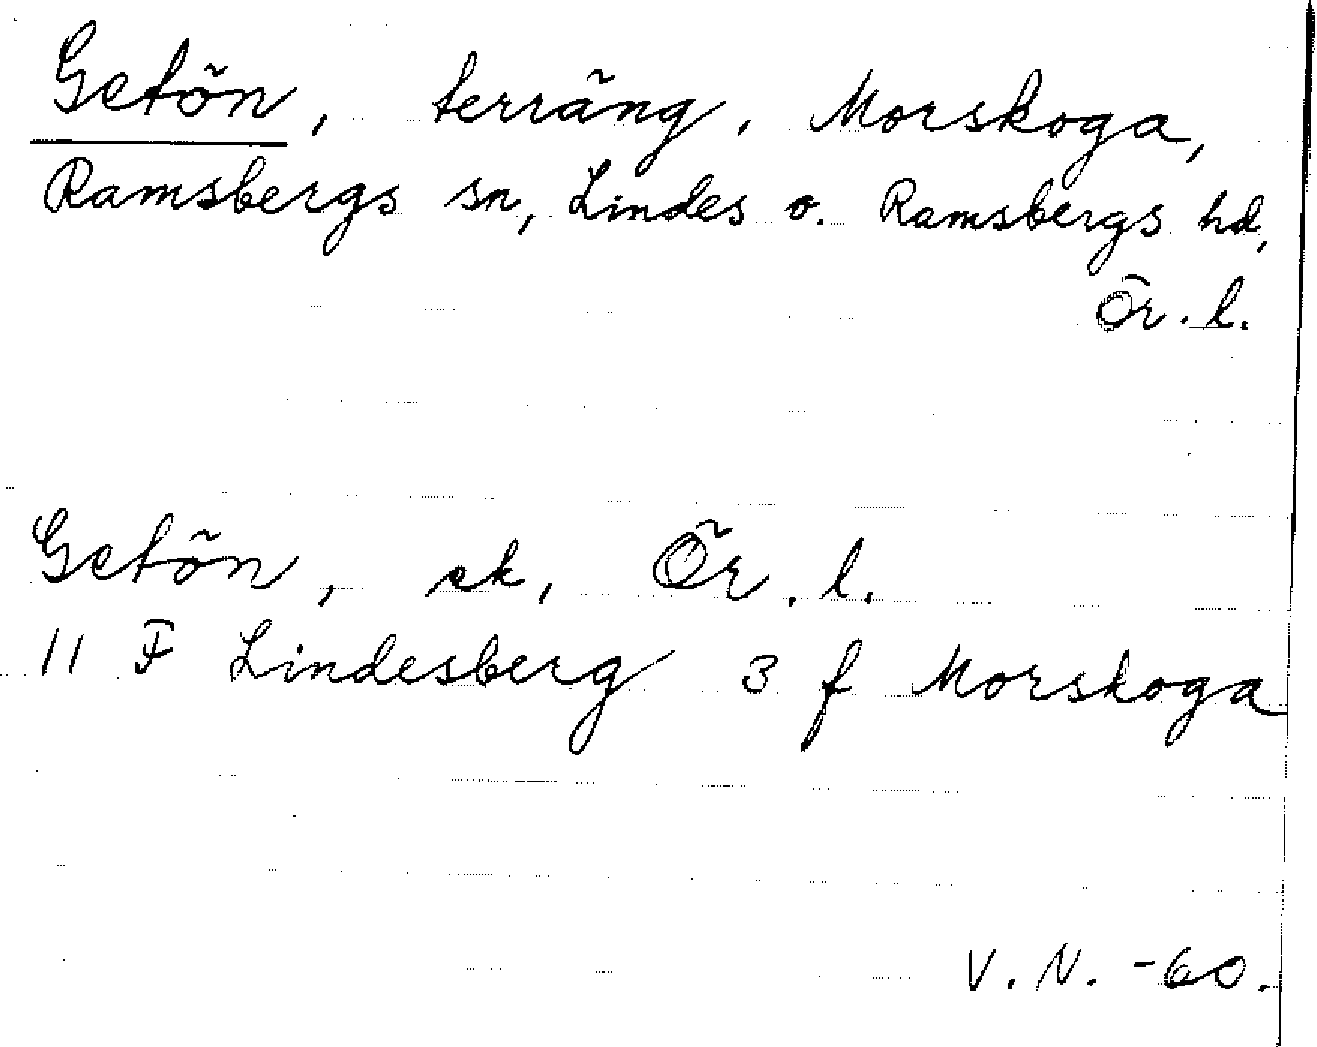 Getön, terräng, Morskoga,
Ramsbergs sn, Lindes o. Ramsbergs hd,
Ör. l.
Getön, ek, Ör. l.
11 F Lindesberg 3 f Morskoga
V. N. -60.